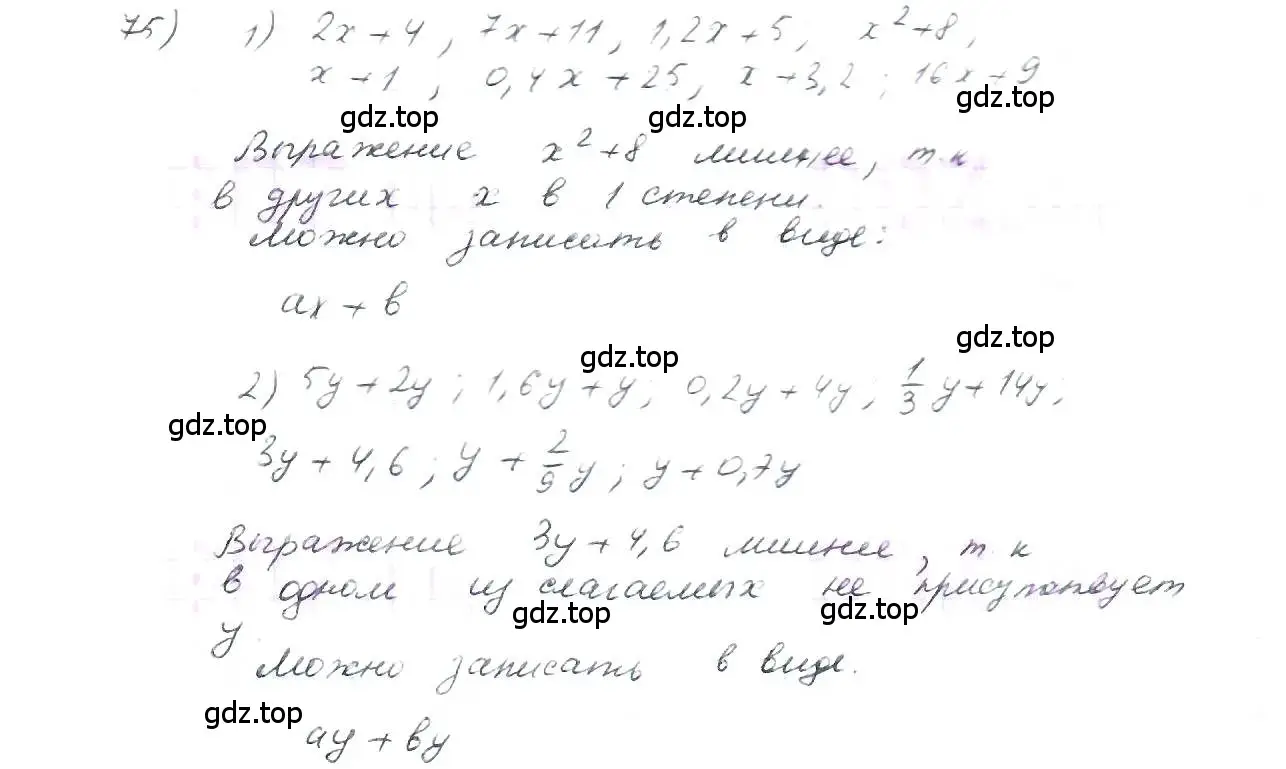 75) 1) 2x+4, 7x+11, 1,2x+5, x²+8,
x+1, 0,4x+25, x+3,2; 16x+9
gdz.top gdz.top gdz.top
Выражение x²+8 лишнее, т.к
в других x в 1 степени.
Можно записать в виде:
ax+в
gdz.top gdz.top
2) 5y+2y; 1,6y+y; 0,2y+4y; 1/3 y+14y;
gdz.top
3y+4,6; y+2/9 y; y+0,7y
Выражение 3y+4,6 лишнее, т.к
в одном из слагаемых не присутствует
gdz.top gdz.top
y
Можно записать в виде.
gdz.top
ay+вy